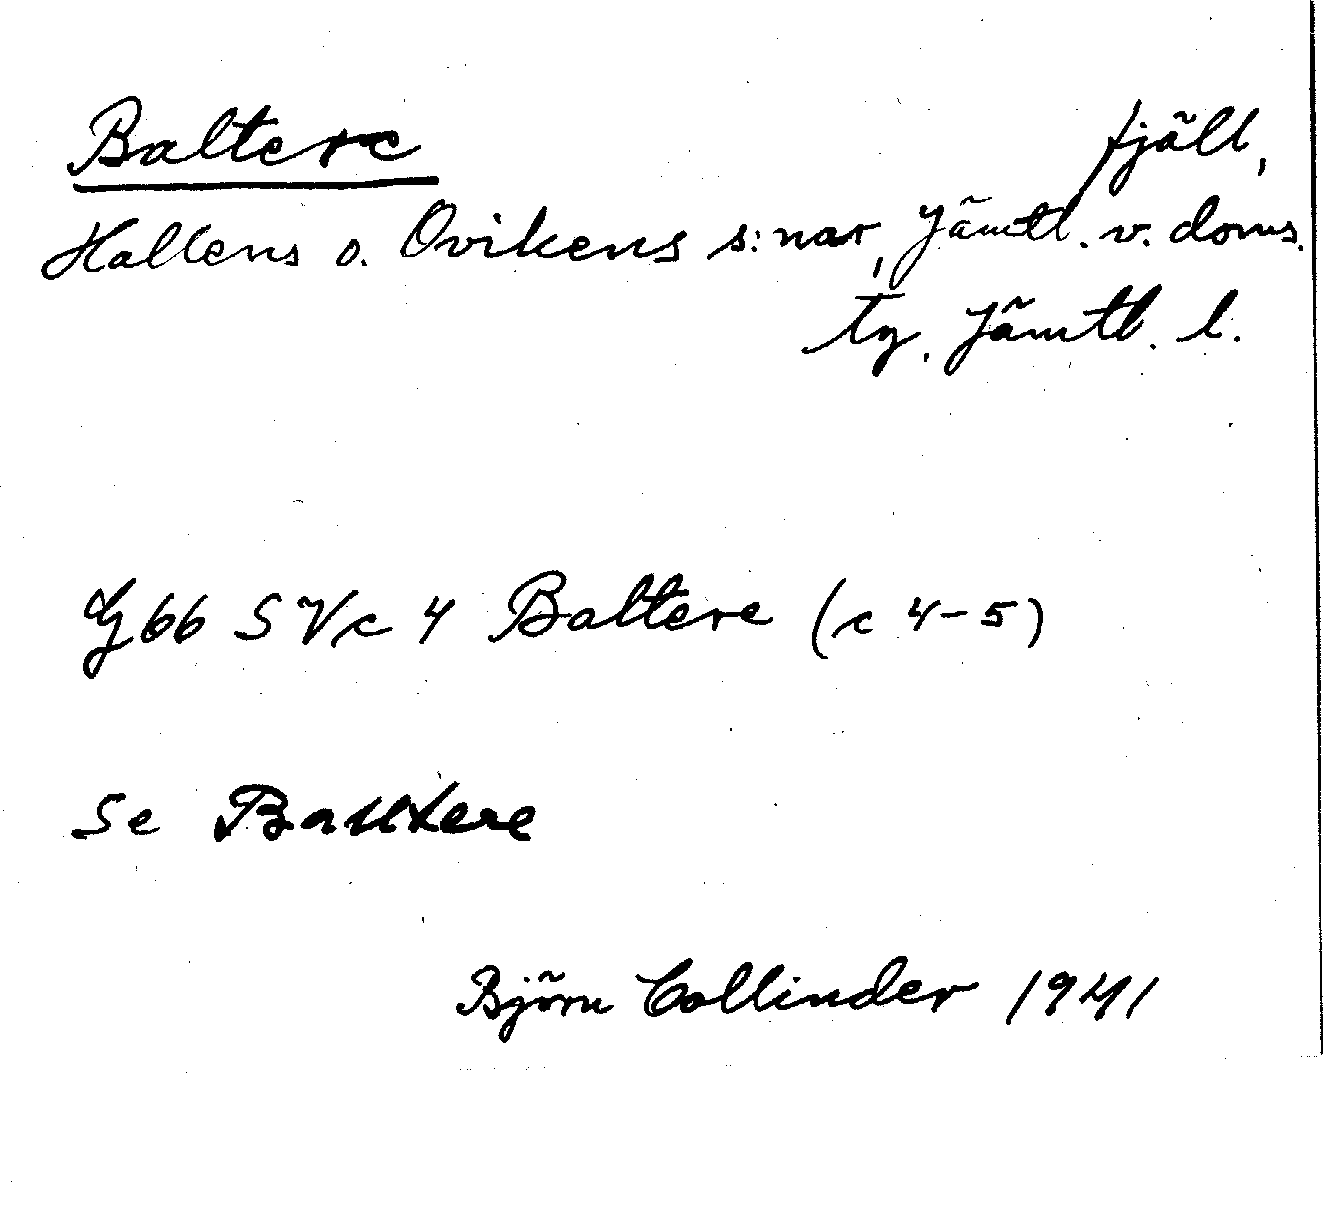 Baltere fjäll,
Hallens o. Ovikens s:nar, Jämtl. v. doms.
tg. Jämtl. l.
G66 SVc 4 Baltere (c 4-5)
Se
Björn Collinder 1941